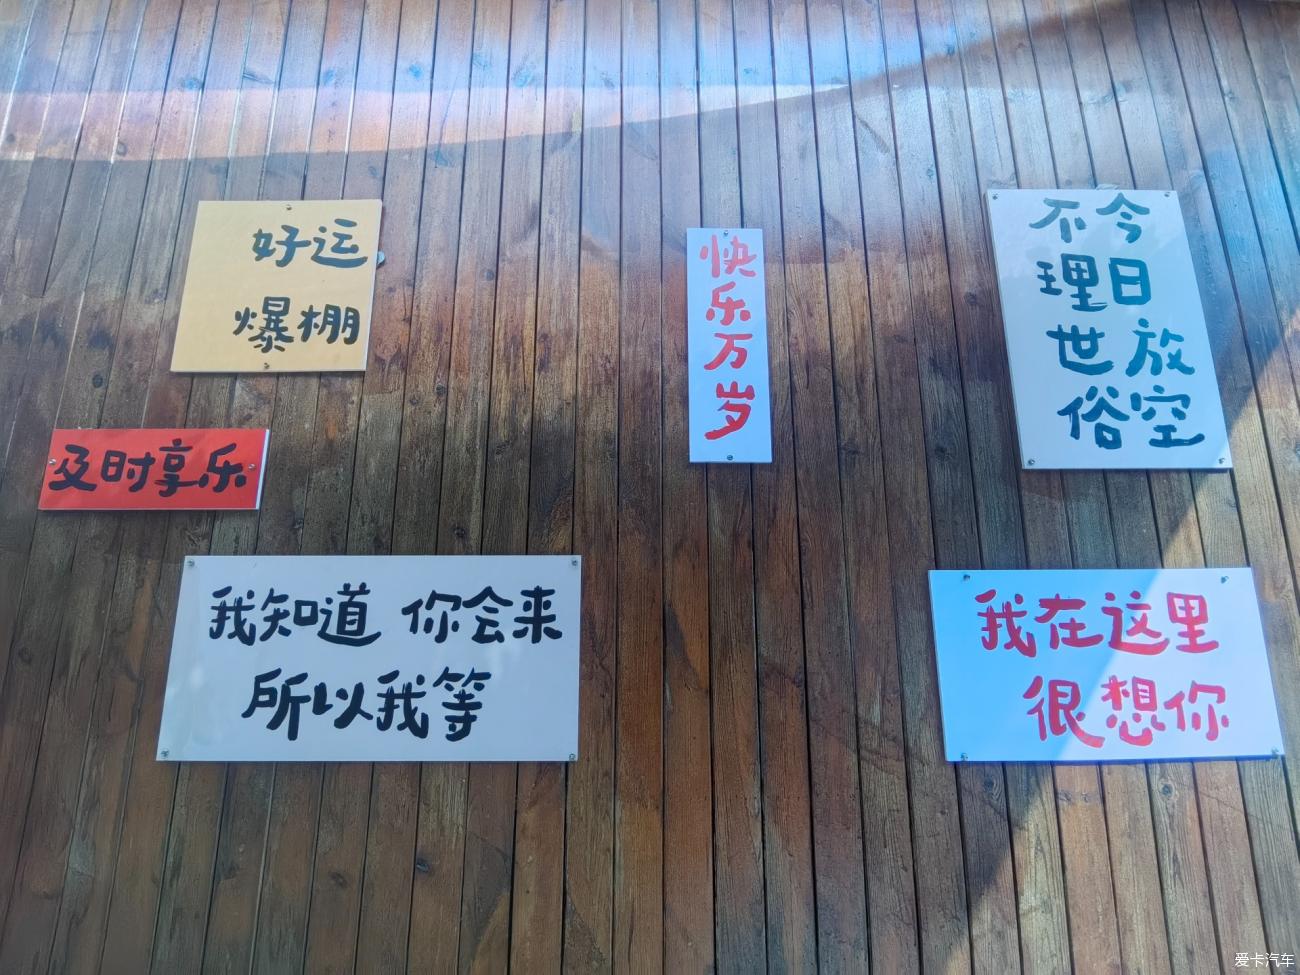 好运
爆棚
及时享乐
快乐万岁
今日放空
不理世俗
我知道 你会来
所以我等
我在这里
很想你
爱卡汽车